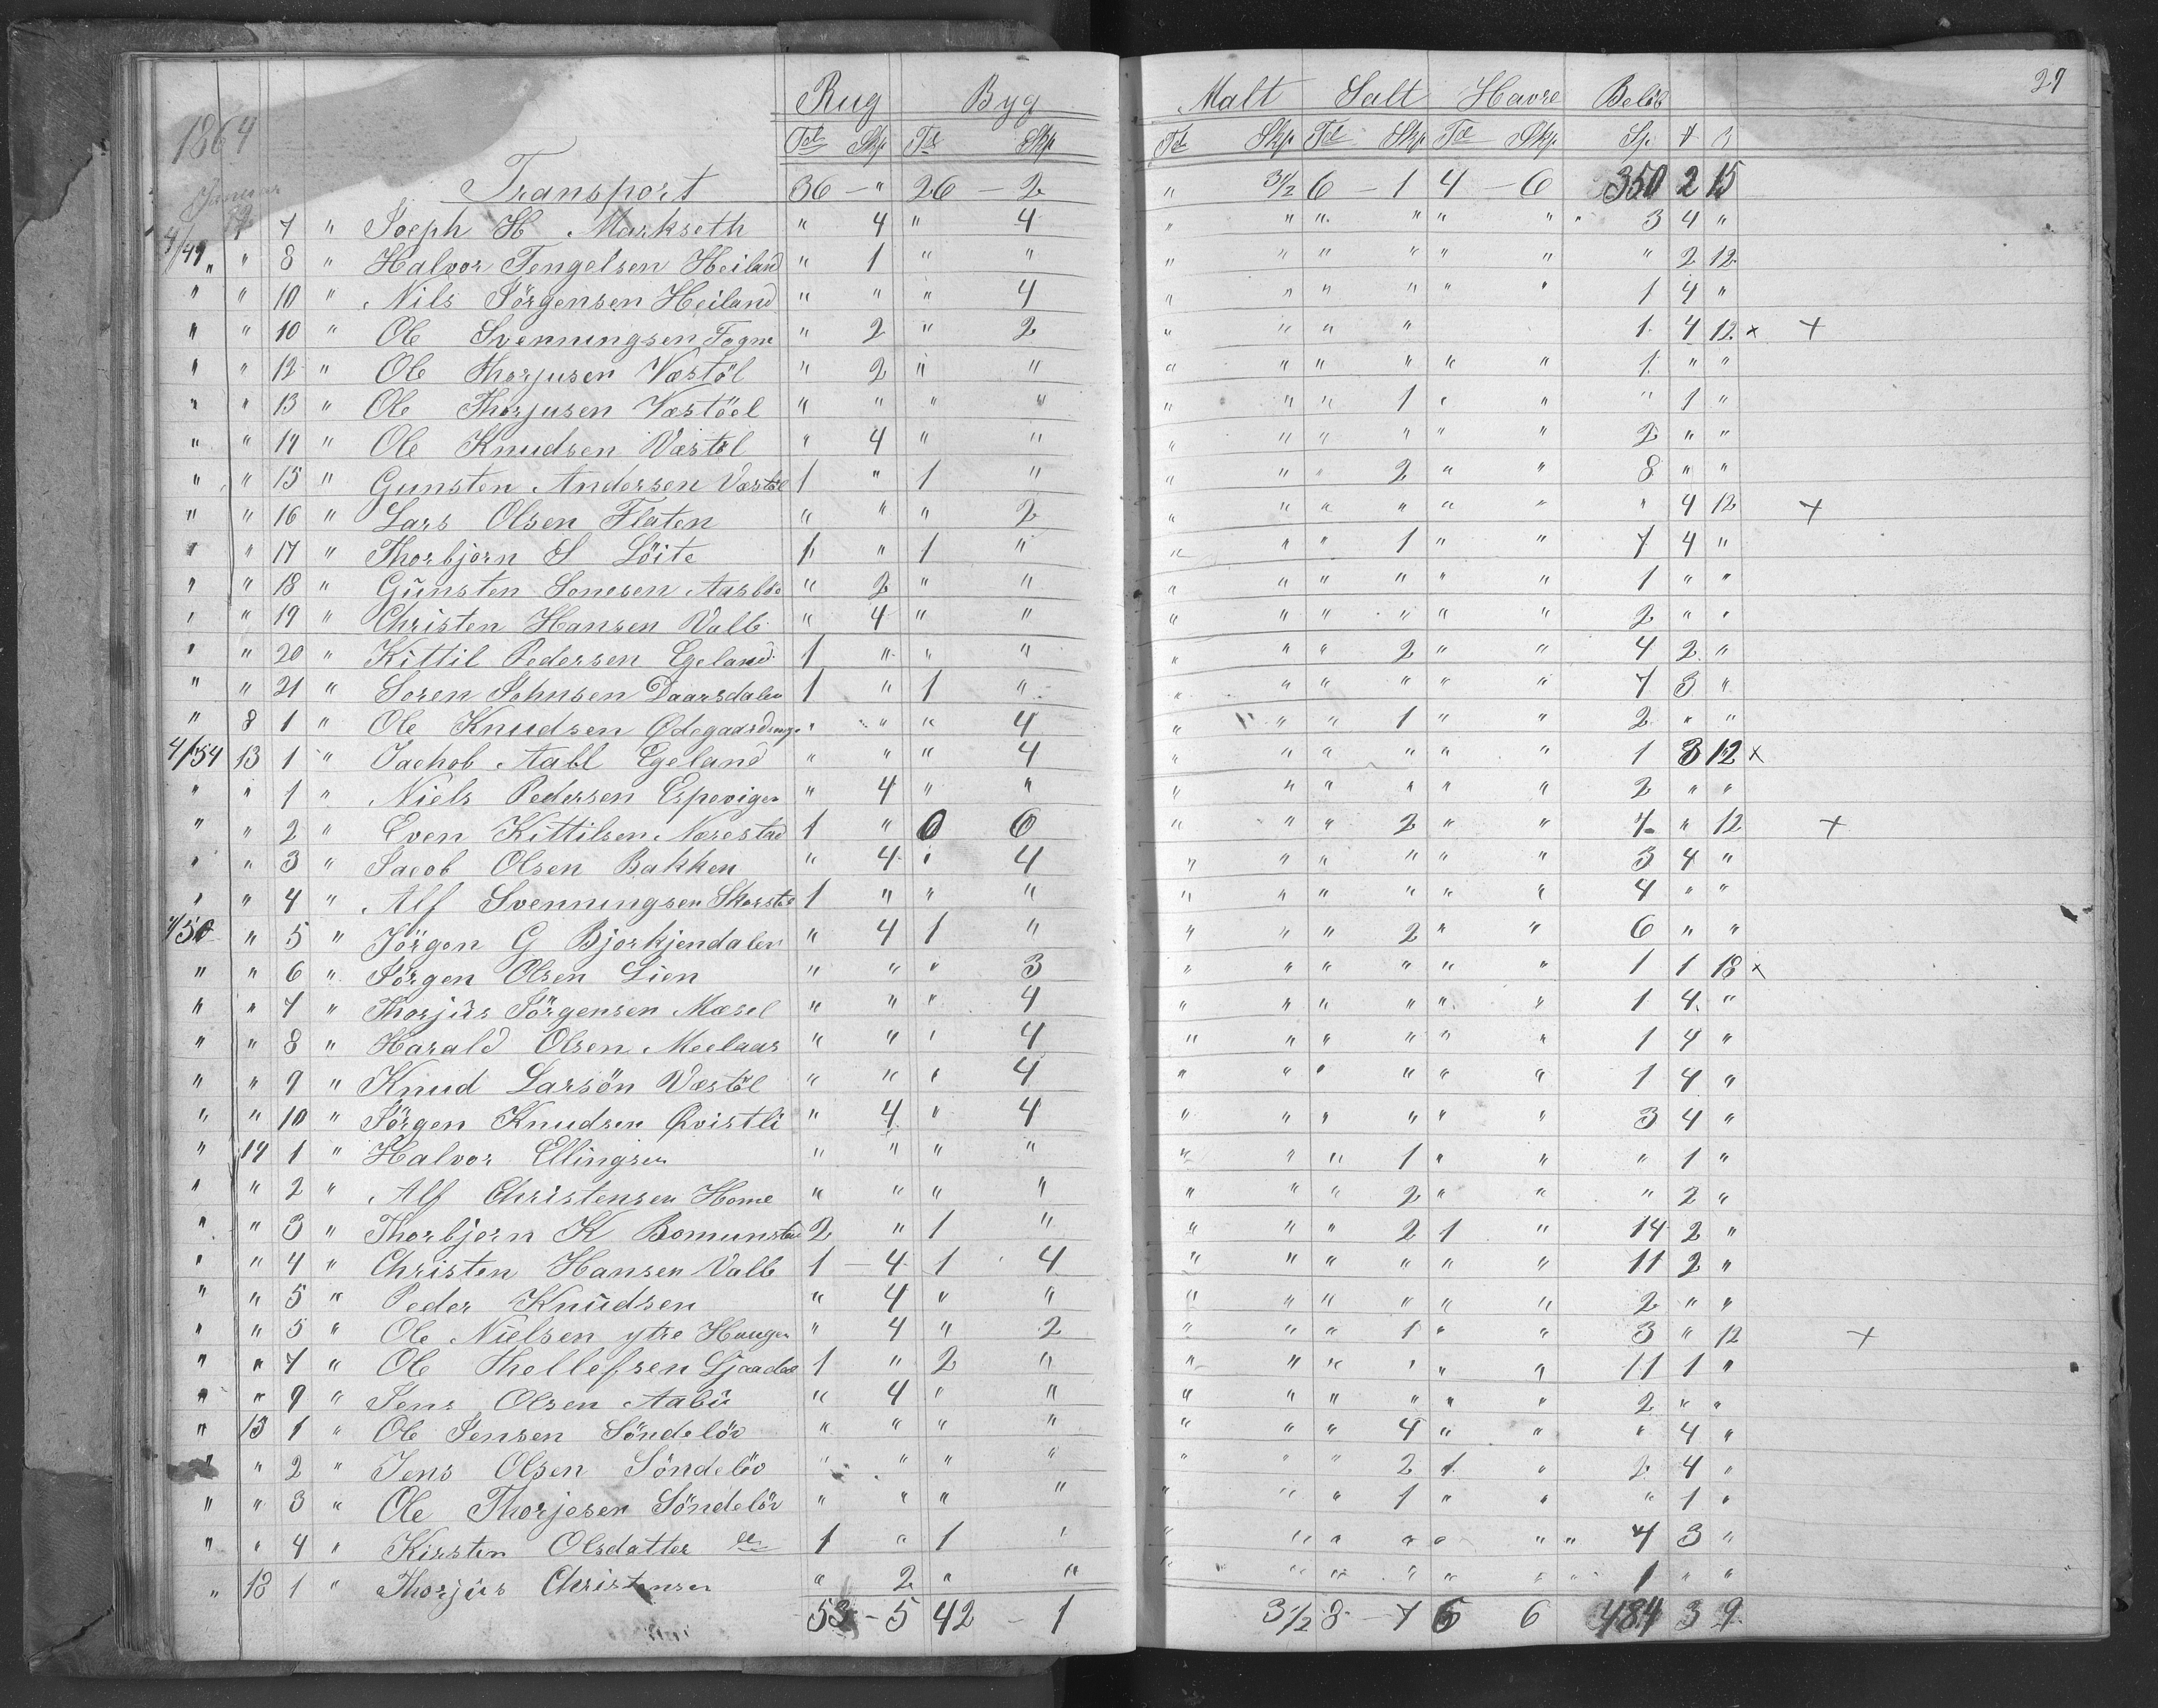 27
Rug Byg Malt Salt Havre Beløb
1864 Td Skp Td Skp Td Skp Td Skp Td Skp Sp
Januar Transport 36 - " 26 - 2 " 3 1/2 6 - 1 4 - 6 350 2 15
7 " Joeph H Markseth " 4 " 4 " " " " " " " 3 4 "
4/49 " " 8 " Halvor Tengelsen Heiland " 1 " " " " " " " " " 2 12
" " 10 " Nils Jörgensen Heiland " " " 4 " " " " " " 1 4 "
" " 10 " Ole Svenningsen Fogne " 2 " 2 " " " " 1 4 12 x +
" " 12 " Ole Thorjusen Væstöl " 2 " " " " " " " " 1 " "
" " 13 " Ole Thorjusen Væstöel " " " " " " " 1 " " " 1 "
" " 14 " Ole Knudsen Væstöl " 4 " " " " " " " " 2 " "
" " 15 " Gunsten Andersen Væstöl 1 " 1 " " " " 2 " " 8 " "
" " 16 " Lars Olsen Flaten " " " 2 " " " " " " " 4 12 +
" " 17 " Thorbjörn S Löite 1 " 1 " " " " 1 " " 7 4 "
" " 18 " Günsten Sonesen Aasbö " 2 " " " " " " " " 1 " "
" " 19 " Christen Hansen Valle " 4 " " " " " " " " 2 " "
" " 20 " Kittil Pedersen Egeland 1 " " " " " " 2 " " 4 2 "
" " 21 " Soren Johnsen Daarsdalen 1 " 1 " " " " " " " 7 3 "
" 8 1 " Ole Knudsen Ødegaards " " " 4 " " " 1 " " 2 " "
4/54 13 1 " Jachob Aabl Egeland " " " 4 " " " " " " 1 3 12 x
" " 1 " Niels Pedersen Espevigen " 4 " " " " " " " " 2 " "
" " 2 " Even Kittilsen Næresta 1 " 0 6 " " " 2 " " 7 " 12 +
" " 3 " Jacob Olsen Bakken " 4 " 4 " " " " " " 3 4 "
" " 4 " Alf Svenningsen Skorstöl 1 " " " " " " " " " 4 " "
4/50 " 5 " Jörgen G Bjorkjendalen " 4 1 " " " " 2 " " 6 " "
" " 6 " Jörgen Olsen Lien " " " 3 " " " " " " 1 1 18 x
" " 7 " Thorjüs Jörgensen Mæsel " " " 4 " " " " " " 1 4 "
" " 8 " Harald Olsen Meelaas " " " 4 " " " " " " 1 4 "
" " 9 " Knud Larsön Væstöl " " " 4 " " " " " " 1 4 "
" " 10 " Jörgen Knudsen Qvistli " 4 " 4 " " " " " " 3 4 "
" 14 1 " Halvor Ellingsen " " " " " " " 1 " " " 1 "
" " 2 " Alf Christensen Home " " " " " " " 2 " " " 2 "
" " 3 " Thorbjern K Bomunstad 2 " 1 " " " " 2 1 " 14 2 "
" " 4 " Christen Hansen Valle 1 - 4 1 4 " " " " " " 11 2 "
" " 5 " Peder Knüdsen " 4 " " " " " " " " 2 " "
" " 5 " Ole Nielsen ytre Haugen " 4 " 2 " " " 1 " " 3 " 12 +
" " 7 " Ole Thellefsen 1 " 2 " " " " " " " 11 1 "
" " 9 " Jens Olsen Aabü " 4 " " " " " " " " 2 " "
" 15 1 " Ole Jensen Söndelöv " " " " " " " 4 " " " 4 "
" " 2 " Jens Olsen Söndelöv " " " " " " " 2 1 " 2 4 "
" " 3 " Ole Thorjesen Söndelöv " " " " " " " 1 " " " 1 "
" " 4 " Kirsten Olsdatter do 1 " 1 " " " " " " " " 7 3 "
" 18 1 " Thorjüs Christensen " 2 " " " " " " " " " 1 " "
53 - 5 42 - 1 3 1/2 8 - 7 6 6 484 3 9